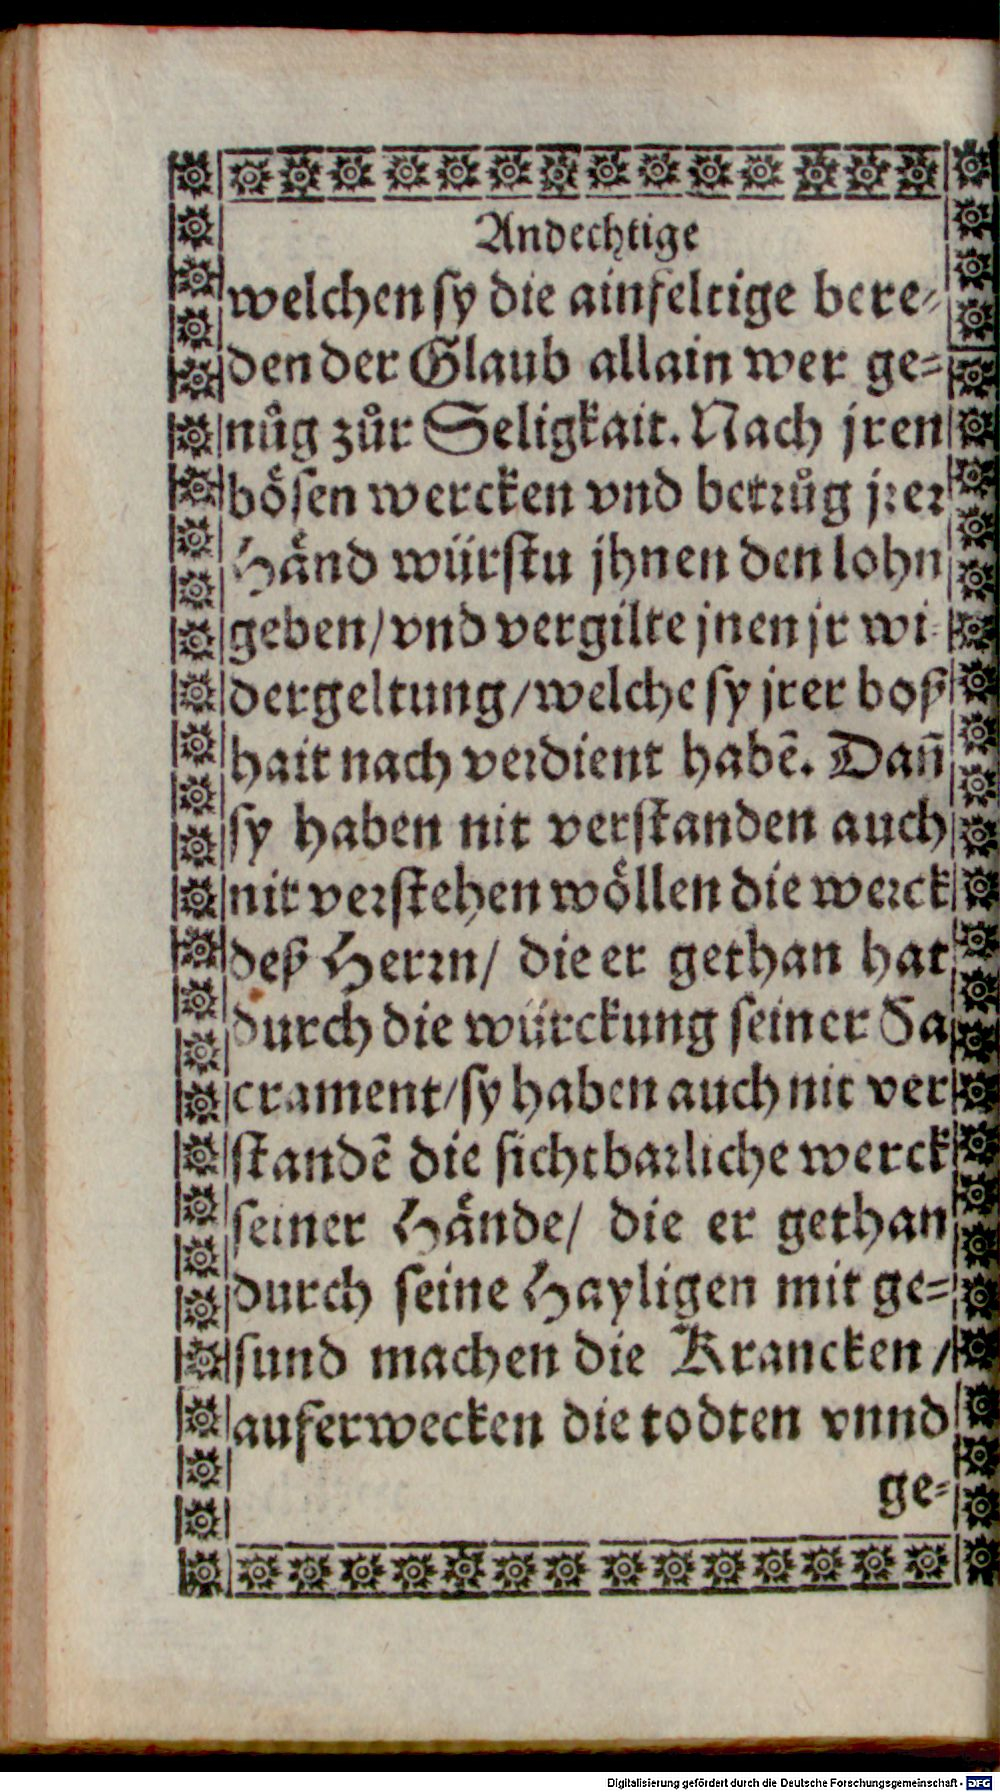 Andechtige
welchen sy die ainfeltige bere⸗
den der Glaub allain wer ge⸗
nůg zůr Seligkait. Nach jren
bösen wercken vnd betrůg jrer
Händ würstu jhnen den lohn
geben/ vnd vergilte jnen jr wi⸗
dergeltung/ welche sy jrer boß
hait nach verdient habẽ. Dañ
sy haben nit verstanden auch
nit verstehen wöllen die werck
deß Herrn/ die er gethan hat
durch die würckung seiner Sa
crament/ sy haben auch nit ver
standẽ die sichtbarliche werck
seiner Hände/ die er gethan
durch seine Hayligen mit ge⸗
sund machen die Krancken/
auferwecken die todten vnnd
ge⸗
Digitalisierung gefördert durch die Deutsche Forschungsgemeinschaft - DFG